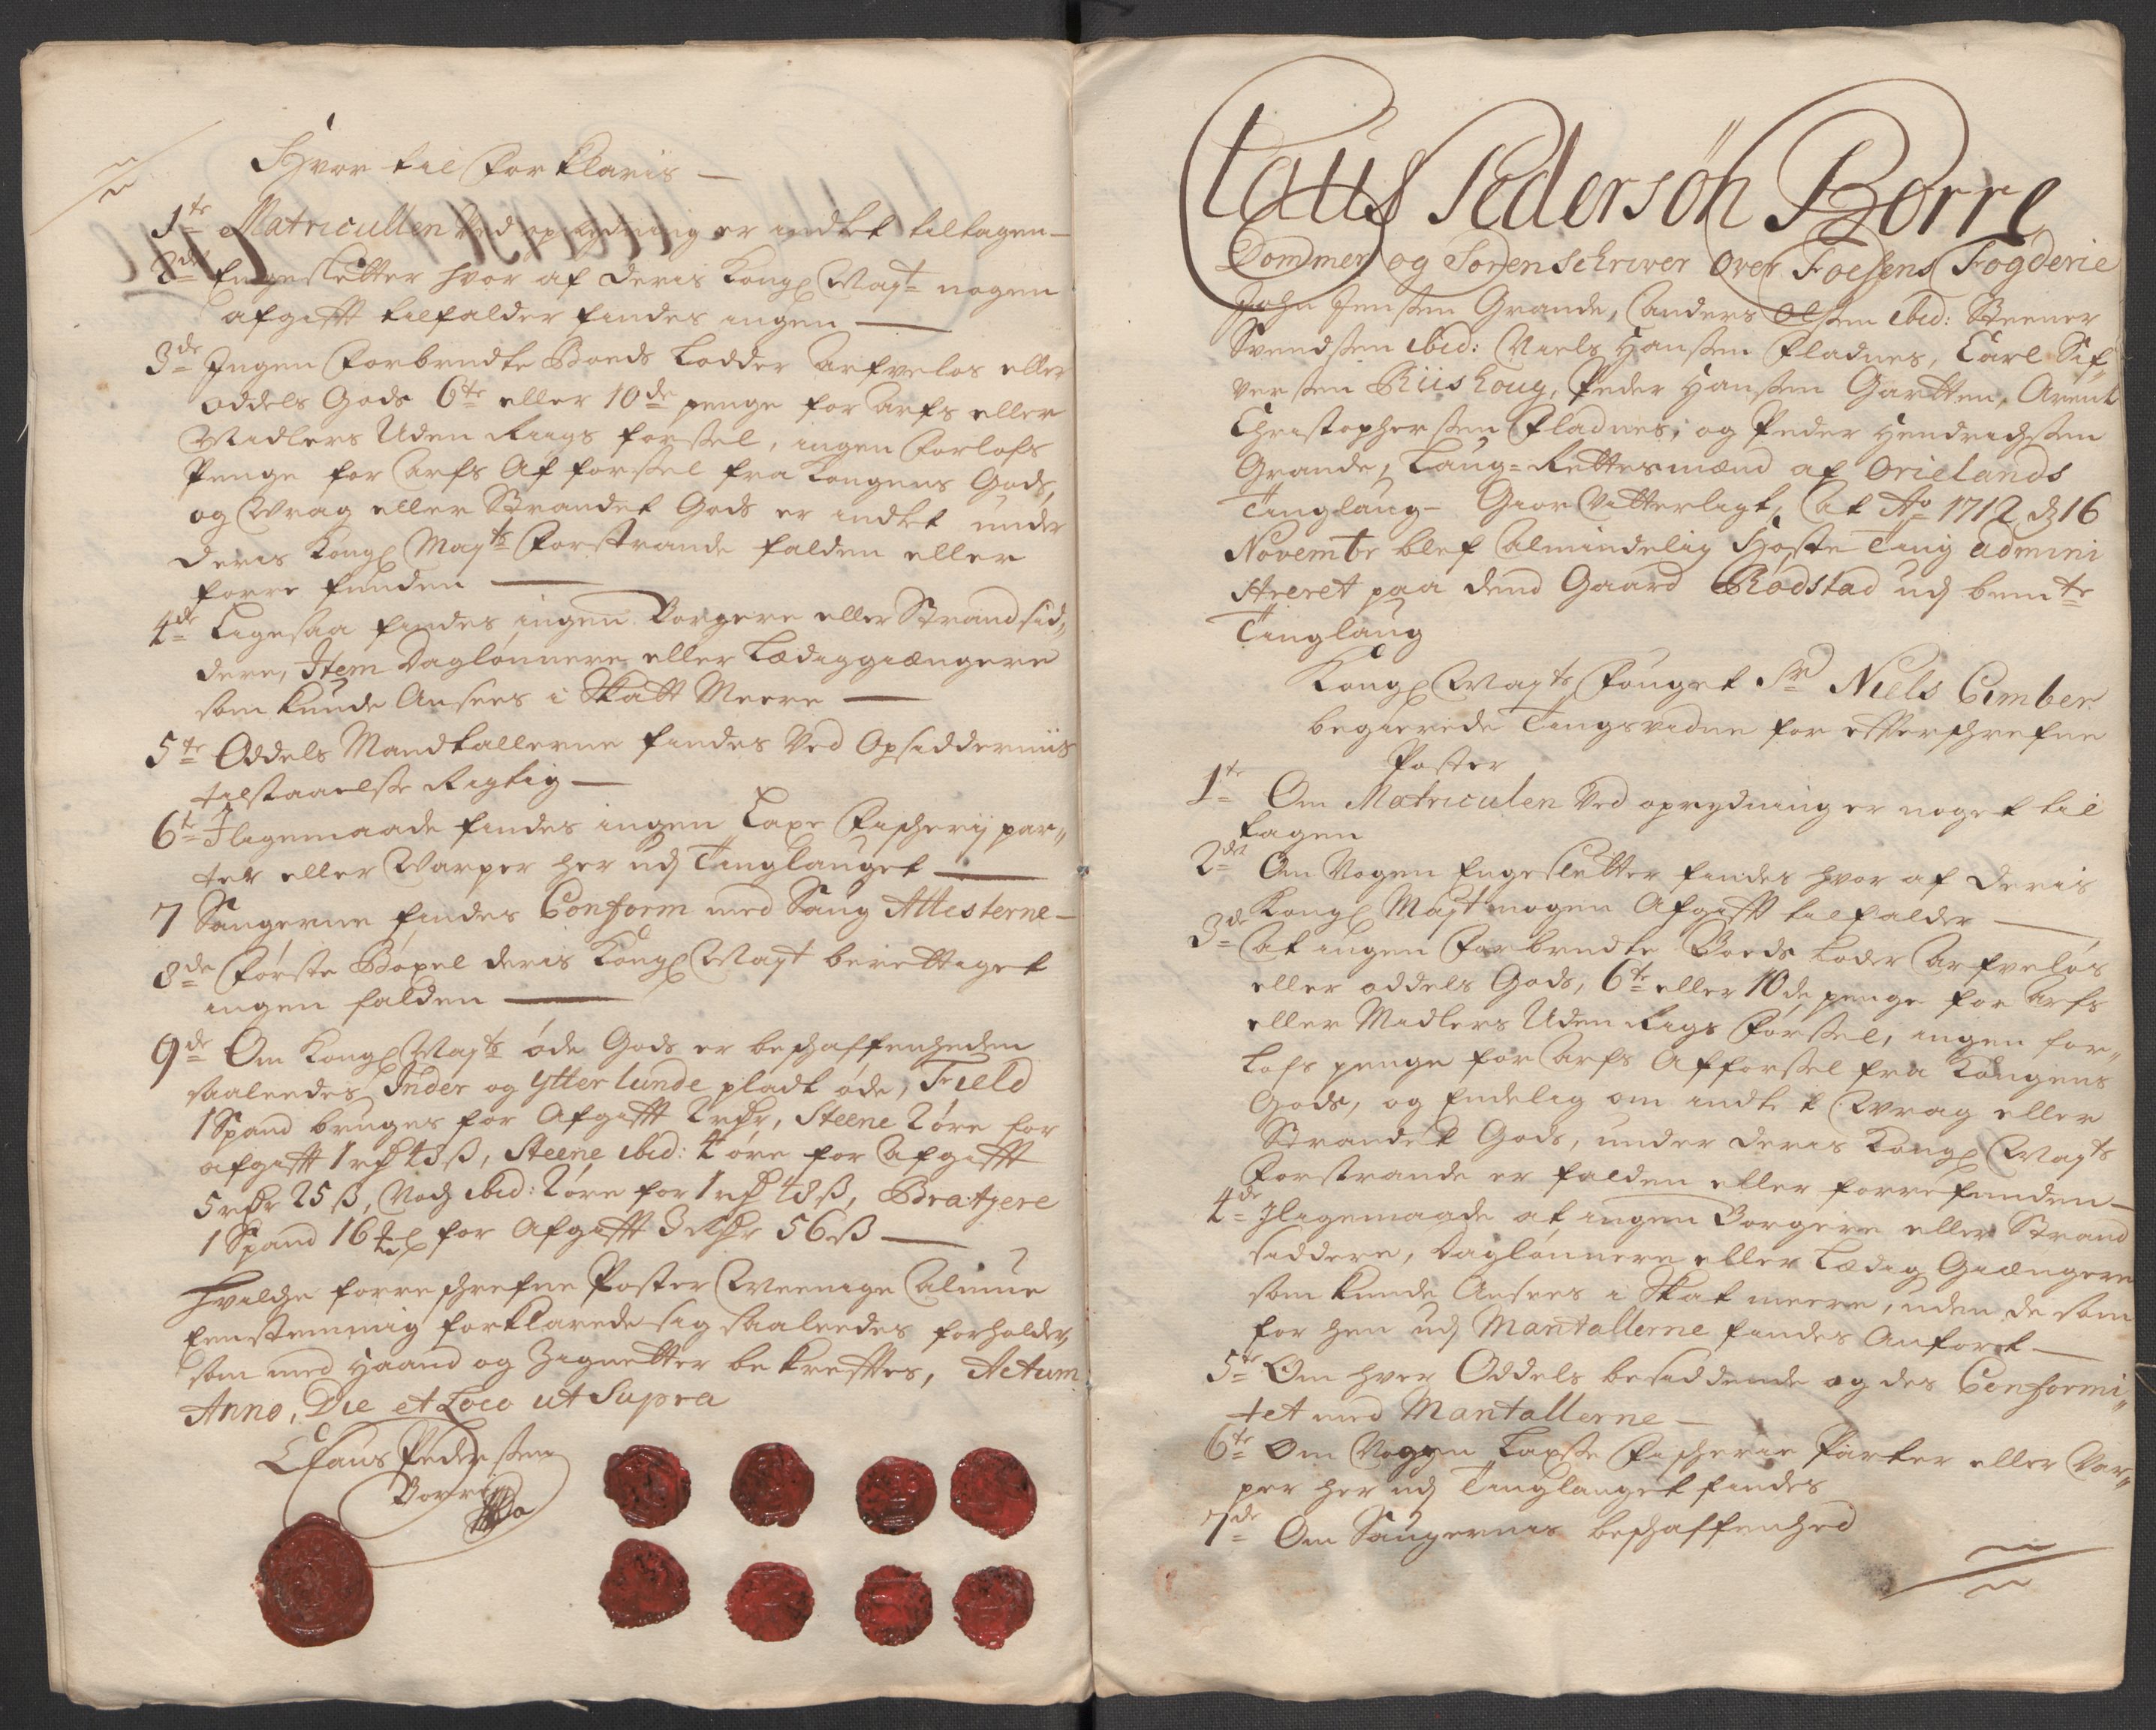 Hvor til Forklaris —
1te Matricullen ved oprydning er indtet tiltagen —
2den Engesletter hvor af deris Kongl Mayt nogen
afgifft tilfalder findes ingen —
3de Ingen Forbrudte Boeds Lodder Arfveløs eller
oddels Gods 6te eller 10de penge for arfs eller
Midlers Uden Riigs førsel, ingen Forlofs
Penge for Arfs Af førsel fra Kongens Gods,
og Wrag eller Strandet Gods er indtet under
Deris Kongl Mayts Forstrande falden eller
forre funden —
4de Ligesaa findes ingen Borgere eller Strandsid„
dere, Item Daglønnere eller Lædiggiængere
som kunde Ansees i Skatt Meere —
5te Oddels Mandtallerne findes Ved Opsiddernis
tilstaaelse Rigtig —
6te Iligemaade findes ingen Laxe Fischerij par„
ter eller Warper her udj Tinglauget —
7 Saugerne findes Conform med Saug Attesterne —
8de Første Bøxel deris Kongl Mayt berettiget
ingen falden —
9de Om Kongl Mayts øde Gods er beschaffenheden
saaleedes Inder og Ytter lunde pladt øde, Field
1 Spand bruges for Afgifft 2 rdr, Steene 2 øre for
afgifft 1 rd 48 ß, Steene ibid: 4 øre for Afgifft
5 rdr 25 ß, Noch ibid: 2 øre for 1 rd 48 ß, Bratjere
1 Spand 16 for Afgifft 3 Rdr 56 ß —
Hvilche forreschrefne Poster Meenige Almue
Eenstemmig forklarede sig saaleedes forholder,
som med Haand og Zignetter bekreffttes, Actum
Anno, Die et Loco ut Supra
Claus Pederssen
Borrig
Claus Pedersøn Borre
Dommer og Sorenschriver Over Foesens Fogderie
John Jenssen Grande, Anders Olssen ibid: Steener
Svendssen ibid: Niels Hanssen Fladnes, Carl Sif„
verssen Riishoug, Peder Hanssen Gartten, Arent
Christopherssen Fladnes, og Peder Hendrichssen
Grande, Laug-Rettesmænd af Ørielands
Tinglaug – Giør Vitterligt, at Ao 1712 d 16
Novembr blef Almindelig Høste Ting admini
streret paa dend Gaard Rødstad udj bemte
Tinglaug
Kongl Mayts Fouget Sr Niels Cimber
begierede Tingsvidne for efterschrefne
Poster
1te Om Matriculen ved oprydning er noget til
tagen
2den Om Nogen Engesletter findes hvor af Deris
Kongl Mayt nogen Afgifft tilfalder —
3de At ingen Forbrudte Boeds Loder Arfveløs
eller oddels Gods, 6te eller 10de penge for arfs
eller Midlers Uden Rigs Førsel, ingen for„
Lofs penge for Arfs Afførsel fra Kongens
Gods, og Endelig om indtet Wrag eller
Strandet Gods, under Deris Kongl Mayts
Forstrande er falden eller forrefunden —
4de Iligemaade at ingen Borgere eller Strand
siddere, Daglønnere eller Lædig Giængere
som kunde Ansees i Skat meere, uden de som
for hen udj Mantallerne findes Anført —
5te Om hver Oddels besiddende og des Conformi„
tet med Mantallerne —
6te Om Nogen Laxsse Fischerie Parter eller Var„
per her udj Tinglauget findes
7de Om Saugernis beschaffenhed